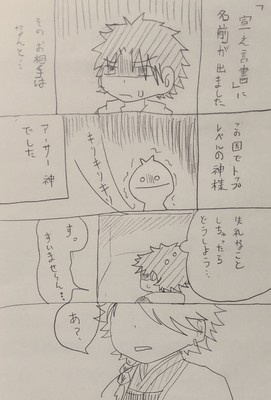 「宣之言書」に
名前が出ました
そのお相手は
なんと…
この国でトップ
レベルの神様
キリキリキリ
アーサー神
でした
失礼なこと
しちゃったら
どうしよう…
す。
すいませーん…
あ?